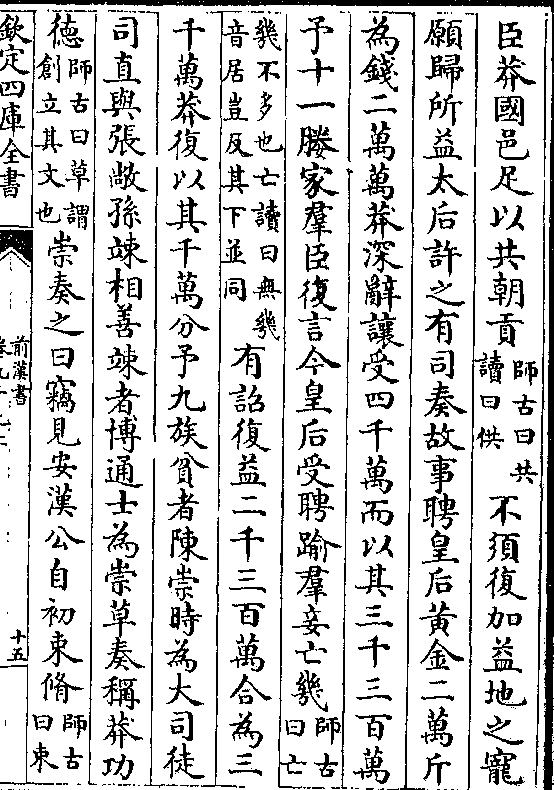 臣莽國邑足以共朝貢師古曰共讀曰供不須復加益地之寵
願歸所益太后許之有司奏故事聘皇后黃金二萬斤
為錢二萬萬莽深辭讓受四千萬而以其三千三百萬
予十一媵家羣臣復言今皇后受聘踰羣妾亡幾師古曰亡
幾不多也亡讀曰無幾音居豈反其下並同有詔復益二千三百萬合為三
千萬莽復以其千萬分予九族貧者陳崇時為大司徒
司直與張敞孫竦相善竦者博通士為崇草奏稱莽功
德師古曰草謂創立其文也崇奏之曰竊見安漢公自初束脩師古曰束
欽定四庫全書
前漢書
十五